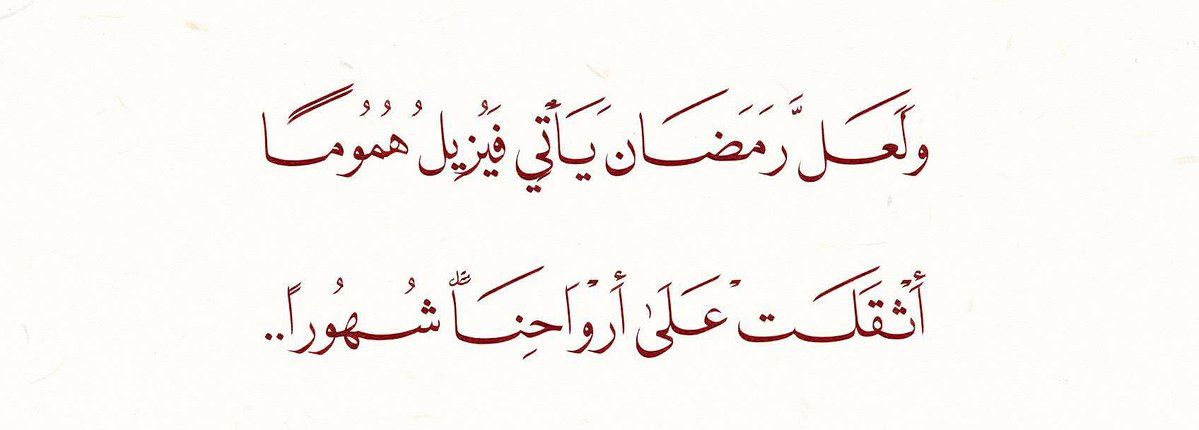 وَلَعَلَّ رَمَضَانَ يَأْتِي فَيُزِيلُ هُمُومًا
أَثْقَلَتْ عَلَىٰ أَرْوَاحِنَا شُهُورًا..